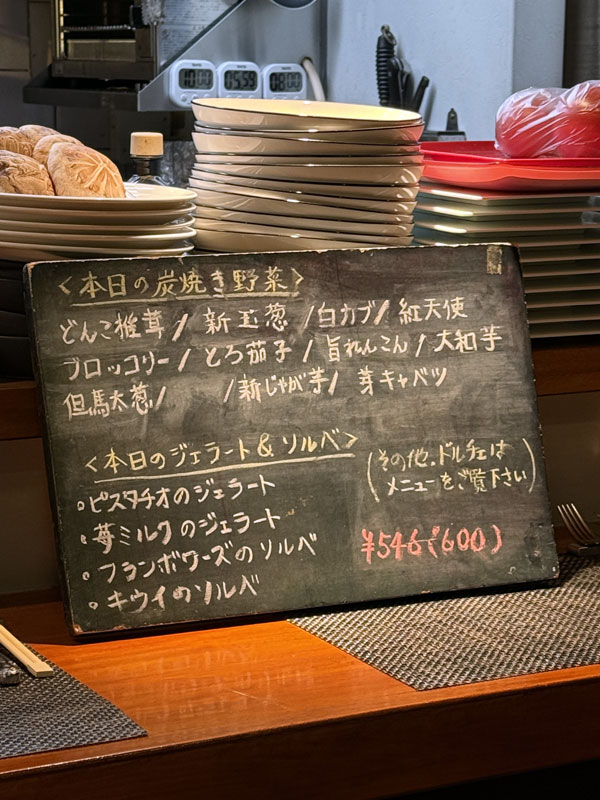 10:00
05:59
10:00
<本日の炭焼き野菜>
どんこ椎茸/ 新玉葱 /白カブ/ 紅天使
ブロッコリー/ とろ茄子/ 旨れんこん/ 大和芋
但馬太葱/ /新じゃが芋/ 芽キャベツ
<本日のジェラート&ソルベ>
(その他.ドルチェは
メニューをご覧下さい)
。ピスタチオのジェラート
。苺ミルクのジェラート
。フランボワーズのソルベ
。キウイのソルベ
¥546(600)